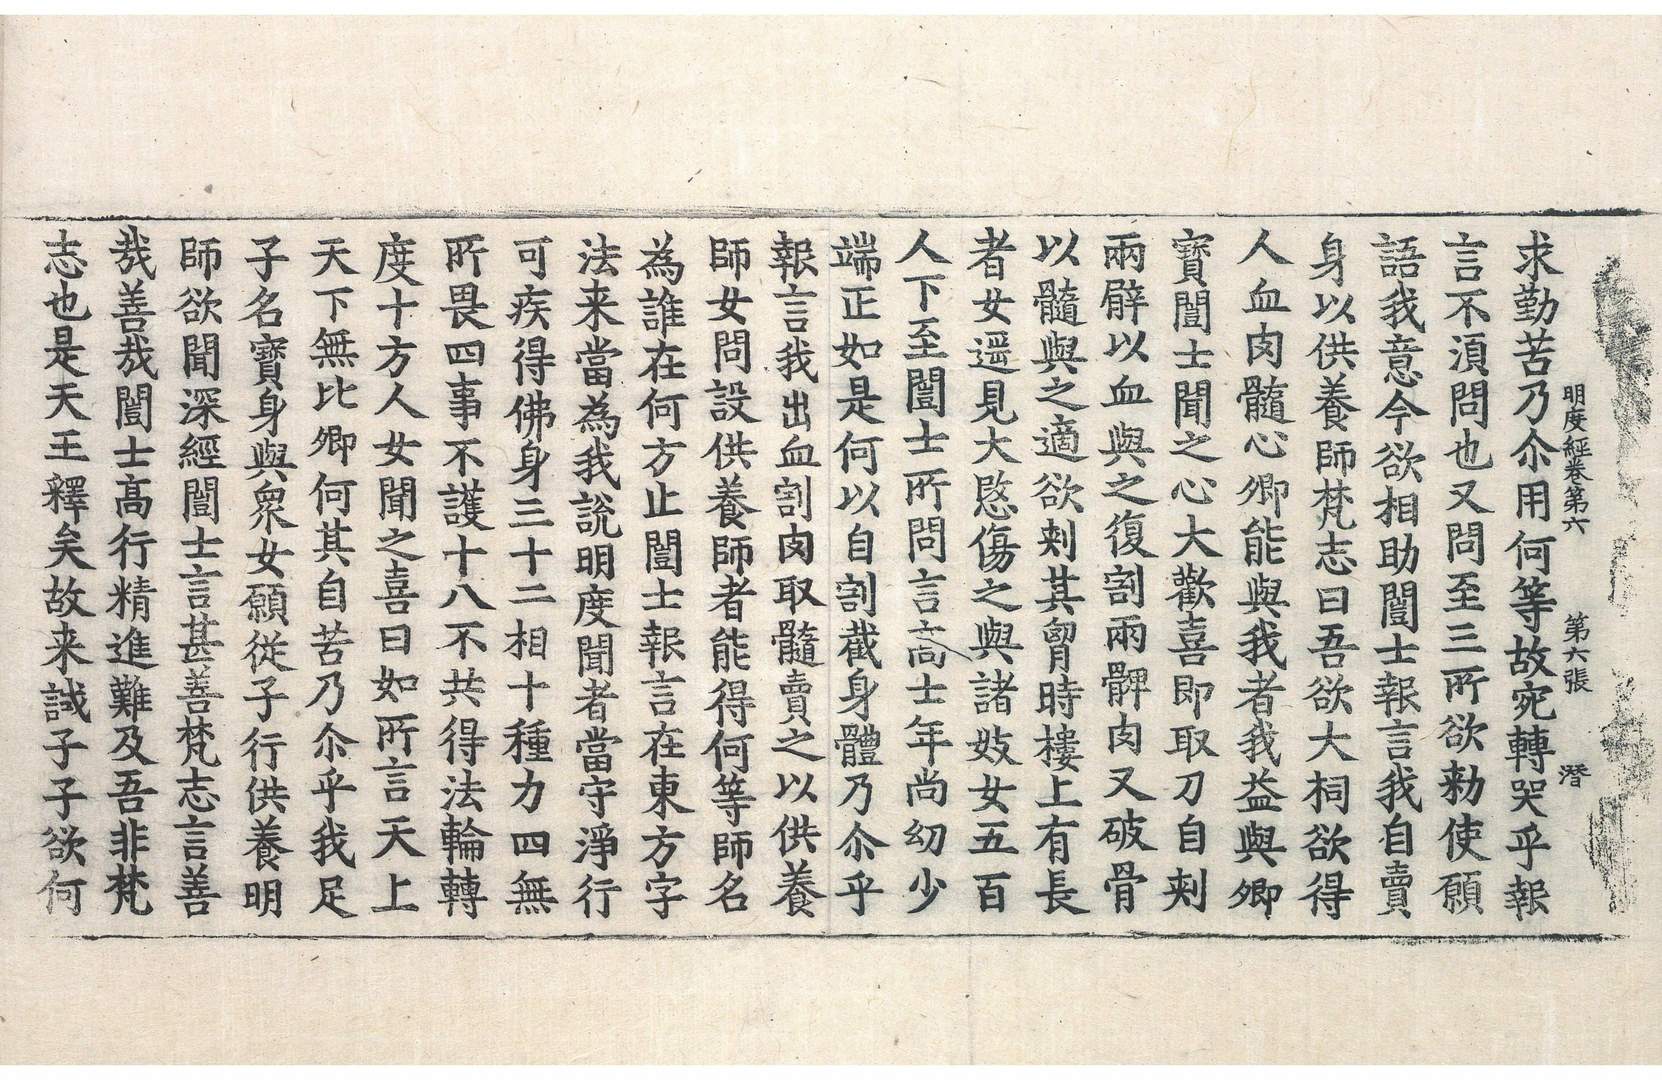 明度經卷第六 第六張 潛
求勤苦乃尒用何等故宛轉哭乎報
言不湏問也又問至三所欲勑使願
語我意今欲相助闓士報言我自賣
身以供養師梵志曰吾欲大祠欲得
人血肉髓心卿能與我者我益與卿
寶闓士聞之心大歡喜即取刀自刾
兩臂以血與之復割兩髀肉又破骨
以髓與之適欲刾其胷時樓上有長
者女遥見大愍傷之與諸妓女五百
人下至闓士所問言高士年尚幼少
端正如是何以自割截身體乃尒乎
報言我出血割肉取髓賣之以供養
師女問設供養師者能得何等師名
為誰在何方止闓士報言在東方字
法来當為我說明度聞者當守淨行
可疾得佛身三十二相十種力四無
所畏四事不護十八不共得法輪轉
度十方人女聞之喜曰如所言天上
天下無比卿何其自苦乃尒乎我足
子名寶身與衆女願從子行供養明
師欲聞深經闓士言甚善梵志言善
㢤善㢤闓士高行精進難及吾非梵
志也是天王釋矣故来試子子欲何